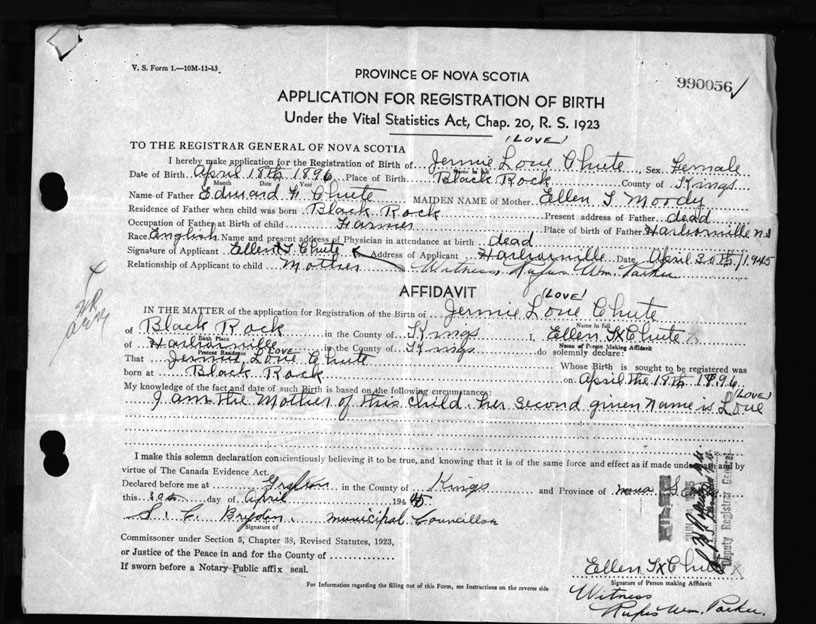 V. S. Form 1.—10M-11-43
990056
PROVINCE OF NOVA SCOTIA
APPLICATION FOR REGISTRATION OF BIRTH
Under the Vital Statistics Act, Chap. 20, R. S. 1923
(LOVE)
TO THE REGISTRAR GENERAL OF NOVA SCOTIA
I hereby make application for the Registration of Birth of Jennie Love Chute Sex Female
Date of Birth April 18th 1896 Place of Birth Black Rock County of Kings
Month Date Year
Name of Father Edward W. Chute MAIDEN NAME of Mother Ellen T Moody
Residence of Father when child was born Black Rock Present address of Father dead
Occupation of Father at Birth of child Farmer Place of birth of Father Harborville N.S
Race English Name and present address of Physician in attendance at birth dead
Signature of Applicant Ellen T. Chute X Address of Applicant Harborville Date April 30th/1945
Relationship of Applicant to child Mother Witness, Rufus Wm. Parker
AFFIDAVIT
(LOVE)
IN THE MATTER of the application for Registration of the Birth of Jennie Love Chute
Name in full
of Black Rock in the County of Kings I, Ellen T X Chute
Birth Place
Name of Person Making Affidavit
of Harborville in the County of Kings do solemnly declare:
Present Residence
(LOVE)
That Jennie Love Chute Whose Birth is sought to be registered was
born at Black Rock on April the 18th 1896
My knowledge of the fact and date of such Birth is based on the following circumstances:
(LOVE)
I am the Mother of this child. her second given name is Love
I make this solemn declaration conscientiously believing it to be true, and knowing that it is of the same force and effect as if made under oath and by
virtue of The Canada Evidence Act.
Declared before me at Grafton in the County of Kings and Province of Nova
this 30th day of April 194 45
S. C. Brydon, municipal Councillor
Signature of
Commissioner under Section 5, Chapter 38, Revised Statutes, 1923,
or Justice of the Peace in and for the County of
If sworn before a Notary Public affix seal.
Ellen T X Chute X
Signature of Person making Affidavit
Witness
Rufus Wm. Parker.
For Information regarding the filling out of this Form, see Instructions on the reverse side
Deputy Registrar General